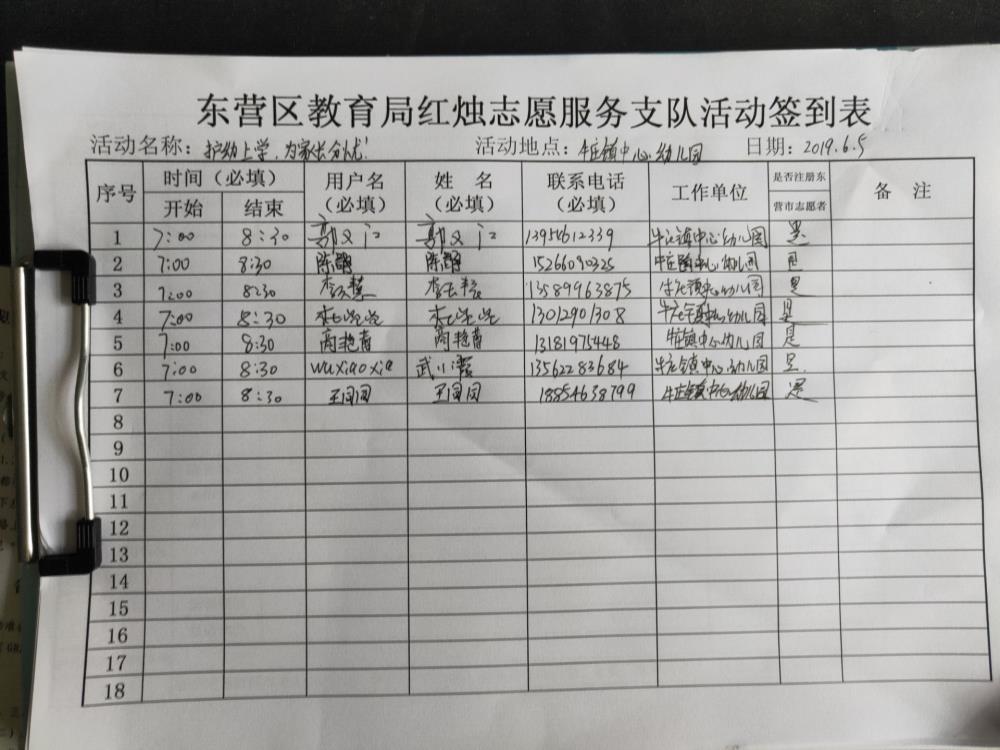 东营区教育局红烛志愿服务支队活动签到表
活动名称：护幼上学，为家长分忧！ 活动地点：牛庄镇中心幼儿园 日期：2019.6.5
序号 时间（必填） 用户名（必填） 姓 名（必填） 联系电话（必填） 工作单位 是否注册东营市志愿者 备 注
开始 结束
1 7:00 8:30 13954612339 牛庄镇中心幼儿园 是
2 7:00 8:30 15266090325 牛庄镇中心幼儿园 是
3 7:00 8:30 13589963875 牛庄镇中心幼儿园 是
4 7:00 8:30 13012901308 牛庄镇中心幼儿园 是
5 7:00 8:30 高艳青 高艳青 13181975448 牛庄镇中心幼儿园 是
6 7:00 8:30 wuxiaoxia 武小霞 13562283684 牛庄镇中心幼儿园 是
7 7:00 8:30 王园园 王园园 18854638799 牛庄镇中心幼儿园 是
8
9
10
11
12
13
14
15
16
17
18